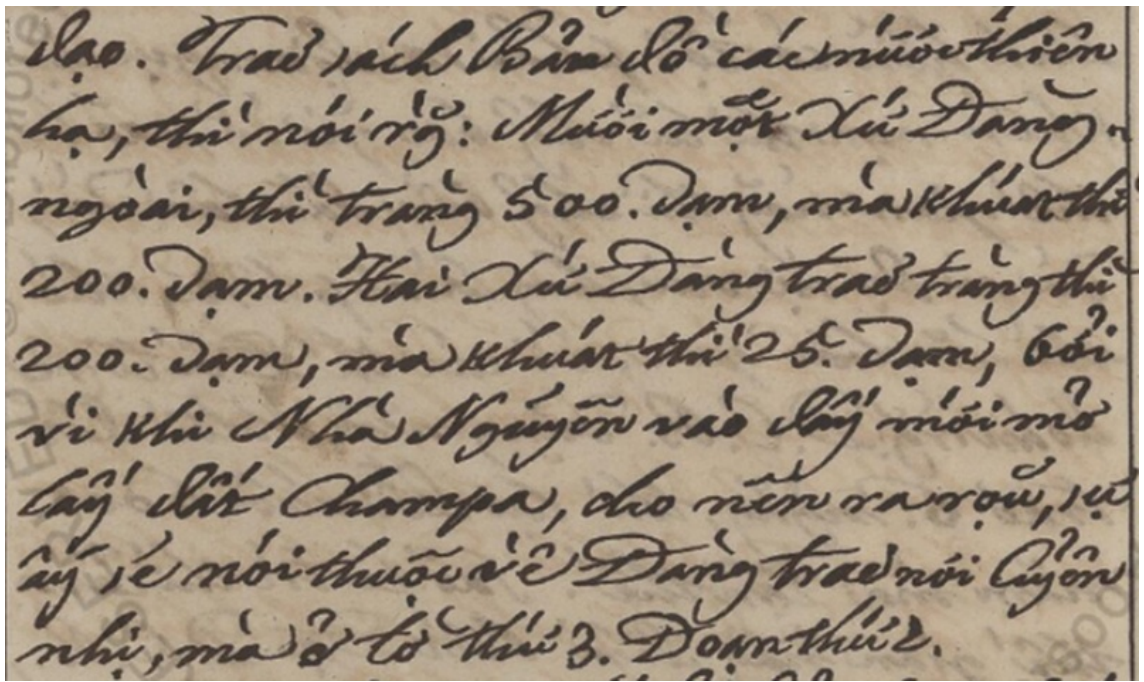 đạo. Traõ sách Bản đồ các nước thiên
hạ, thì nói rằ̆g: Mười một Xứ Đàng
ngoài, thì tràng 500. dạm, mà khuất thì
200. dạm. Hai Xứ Đàng traõ tràng thì
200. dạm, mà khuát thì 25. dạm, bởi
vì khi Nhà Nguyễn vào đấy mới mở
lấy đất Champa, cho nên ra rọũ, sự
ấy sẽ nói thuộc về Đàng traõ nơi Cuyển
nhị, mà ở tờ thứ 3. Đoạn thứ 2.